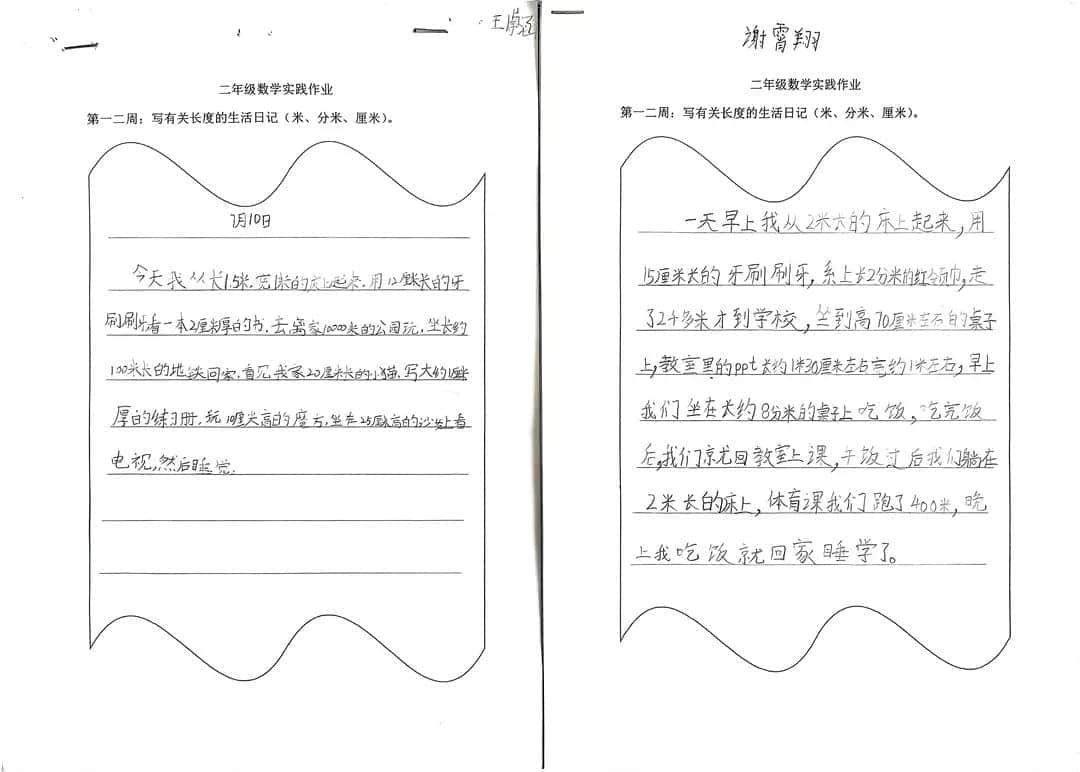 王
二年级数学实践作业
第一二周：写有关长度的生活日记（米、分米、厘米）。
7月10日
今天我从长1.5米，宽1米的床上起来，用12厘米长的牙
刷刷牙看一本2厘米厚的书，去离家10000米的公园玩，坐长约
100米长的地铁回家，看见我家20厘米长的小猫，写大约1厘米
厚的练习册，玩10厘米高的魔方，坐在25厘米高的沙发上看
电视，然后睡觉.
谢霄翔
二年级数学实践作业
第一二周：写有关长度的生活日记（米、分米、厘米）。
一天早上我从2米大的床上起来，用
15厘米长的牙刷刷牙，系上长2分米的红领巾，走
了24多米才到学校，坐到高70厘米左右的桌子
上，教室里的ppt长约1米30厘米左右宽约1米左右，早上
我们坐在大约8分米的桌子上吃饭，吃完饭
后，我们就回教室上课，午饭过后我们躺在
2米长的床上，体育课我们跑了400米，晚
上我吃饭就回家睡学了。